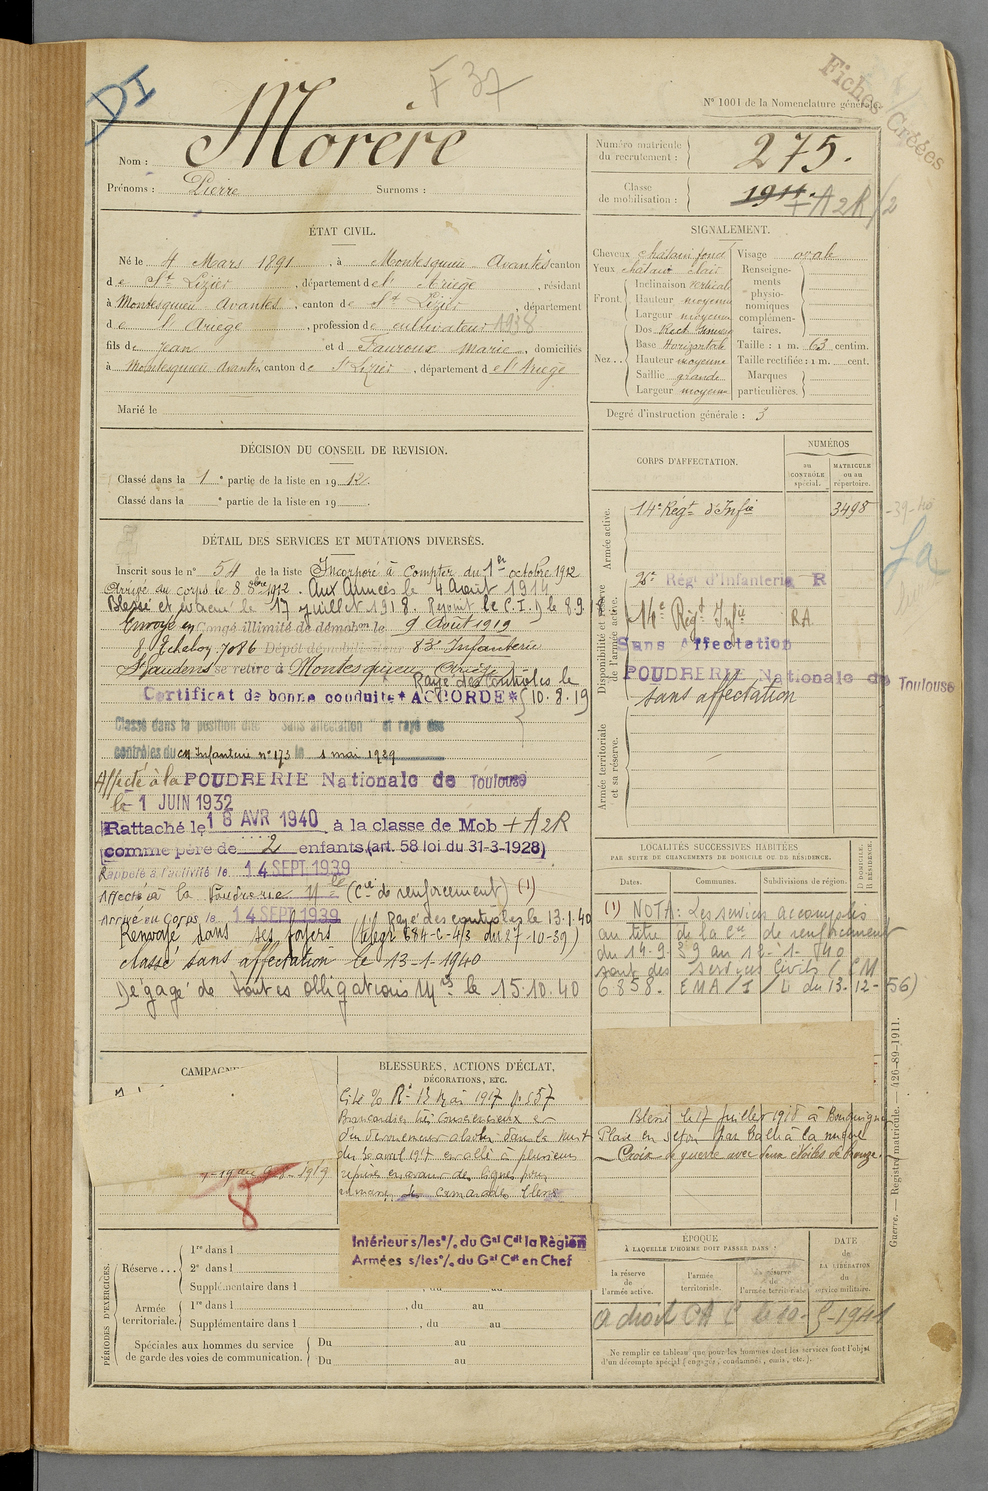 DI
F 37
Fiches Créées
N° 1001 de la Nomenclature générale.
Nom : Morère
Prénoms : Pierre Surnoms :
Numéro matricule du recrutement : 275.
Classe de mobilisation : 1911. + A2R/2
ÉTAT CIVIL.
Né le 4 Mars 1891, à Montesquieu Avantès canton
de St Lizier, département de l'Ariège, résidant
à Montesquieu Avantès, canton de St Lizier, département
de l'Ariège, profession de cultivateur 1938
fils de Jean et de Fauroux Marie, domiciliés
à Montesquieu Avantès, canton de St Lizier, département de l'Ariège
Marié le
SIGNALEMENT.
Cheveux châtain foncé
Yeux châtain clair
Front.
Inclinaison vertical
Hauteur moyenne
Largeur moyenne
Nez..
Dos Rect.
Base Horizontale
Hauteur moyenne
Saillie grande
Largeur moyenne
Visage ovale
Renseignements physionomiques complémentaires.
Taille : 1 m. 63 centim.
Taille rectifiée : 1 m. cent.
Marques particulières.
Degré d'instruction générale : 3
DÉCISION DU CONSEIL DE REVISION.
Classé dans la 1e partie de la liste en 1912.
Classé dans la e partie de la liste en 19 .
CORPS D'AFFECTATION.
NUMÉROS
au CONTRÔLE spécial.
MATRICULE ou au répertoire.
Armée active.
14e Régt d'Infie 3498
-39-40
Disponibilité et réserve de l'armée active.
Régt d'Infanterie R
14e Régt Infie RA
Sans Affectation
POUDRERIE Nationale de Toulouse
sans affectation
Armée territoriale et sa réserve.
DÉTAIL DES SERVICES ET MUTATIONS DIVERSES.
Inscrit sous le n° 54 de la liste Incorporé à compter du 1er octobre 1912
Arrivé au corps le 8 8bre 1912. Aux Armées le 4 Août 1914
Blessé et évacué le 17 juillet 1918. Rejoint le C.I.D le 8.9.18
Envoyé en Congé illimité de démob.on le 9 Août 1919
8 Echelon 7086 Dépôt démobilisateur 83e Infanterie
St Gaudens se retire à Montesquieu Ariège
Rayé des contrôles le 10.8.19
Certificat de bonne conduite * ACCORDE *
Classé dans la position dite "Sans affectation" et rayé des
contrôles du CM Infanterie n° 173 le 1 mai 1929
Affecté à la POUDRERIE Nationale de Toulouse
le 1 JUIN 1932
Rattaché le 18 AVR 1940 à la classe de Mob + A2R
comme père de 2 enfants (art. 58 loi du 31-3-1928)
Rappelé à l'activité le 14 SEPT 1939
Affecté à la Poudrerie Nle (Cie de renforcement) (1)
Arrivé au Corps le 14 SEPT 1939 Rayé des contrôles le 13.1.40
Renvoyé dans ses foyers (telegr 684-C-4/3 du 27-10-39)
classé sans affectation le 13-1-1940
Dégagé de toutes obligations Mres le 15.10.40
LOCALITÉS SUCCESSIVES HABITÉES
PAR SUITE DE CHANGEMENTS DE DOMICILE OU DE RÉSIDENCE.
Dates. Communes. Subdivisions de région.
D DOMICILE. R RÉSIDENCE.
(1) NOTA : Les services accomplis
au titre de la Cie de renforcement
du 14-9-39 au 12-1-1940
sont des services civils (C.M
6858. EMA/I/L du 13-12-56)
CAMPAGNES
-1919
8
BLESSURES, ACTIONS D'ÉCLAT,
DÉCORATIONS, ETC.
Cité % Rt 13 Mai 1917 n° 557
Brancardier très consciencieux et
d'un dévouement absolu dans la nuit
du 30 avril 1917 est allé à plusieurs
reprises en avant des lignes pour
ramener des camarades blessés
Intérieur s/les %. du Gal Cdt la Région
Armées s/les %. du Gal Cdt en Chef
Blessé le 17 Juillet 1918 à
Plaie en séton par balle à la nuque
Croix de guerre avec deux étoiles de bronze.
PÉRIODES D'EXERCICES.
Réserve...
1re dans l
2e dans l
Supplémentaire dans l , du au
Armée territoriale.
1re dans l , du au
Supplémentaire dans l , du au
Spéciales aux hommes du service de garde des voies de communication.
Du au
Du au
ÉPOQUE
À LAQUELLE L'HOMME DOIT PASSER DANS :
la réserve de l'armée active.
l'armée territoriale.
la réserve de l'armée territoriale.
DATE de LA LIBÉRATION du service militaire.
a droit CAC le 10-5-1941
Ne remplir ce tableau que pour les hommes dont les services font l'objet d'un décompte spécial (engagés, condamnés, omis, etc.).
Guerre. — Registre matricule. — 426-89-1911.